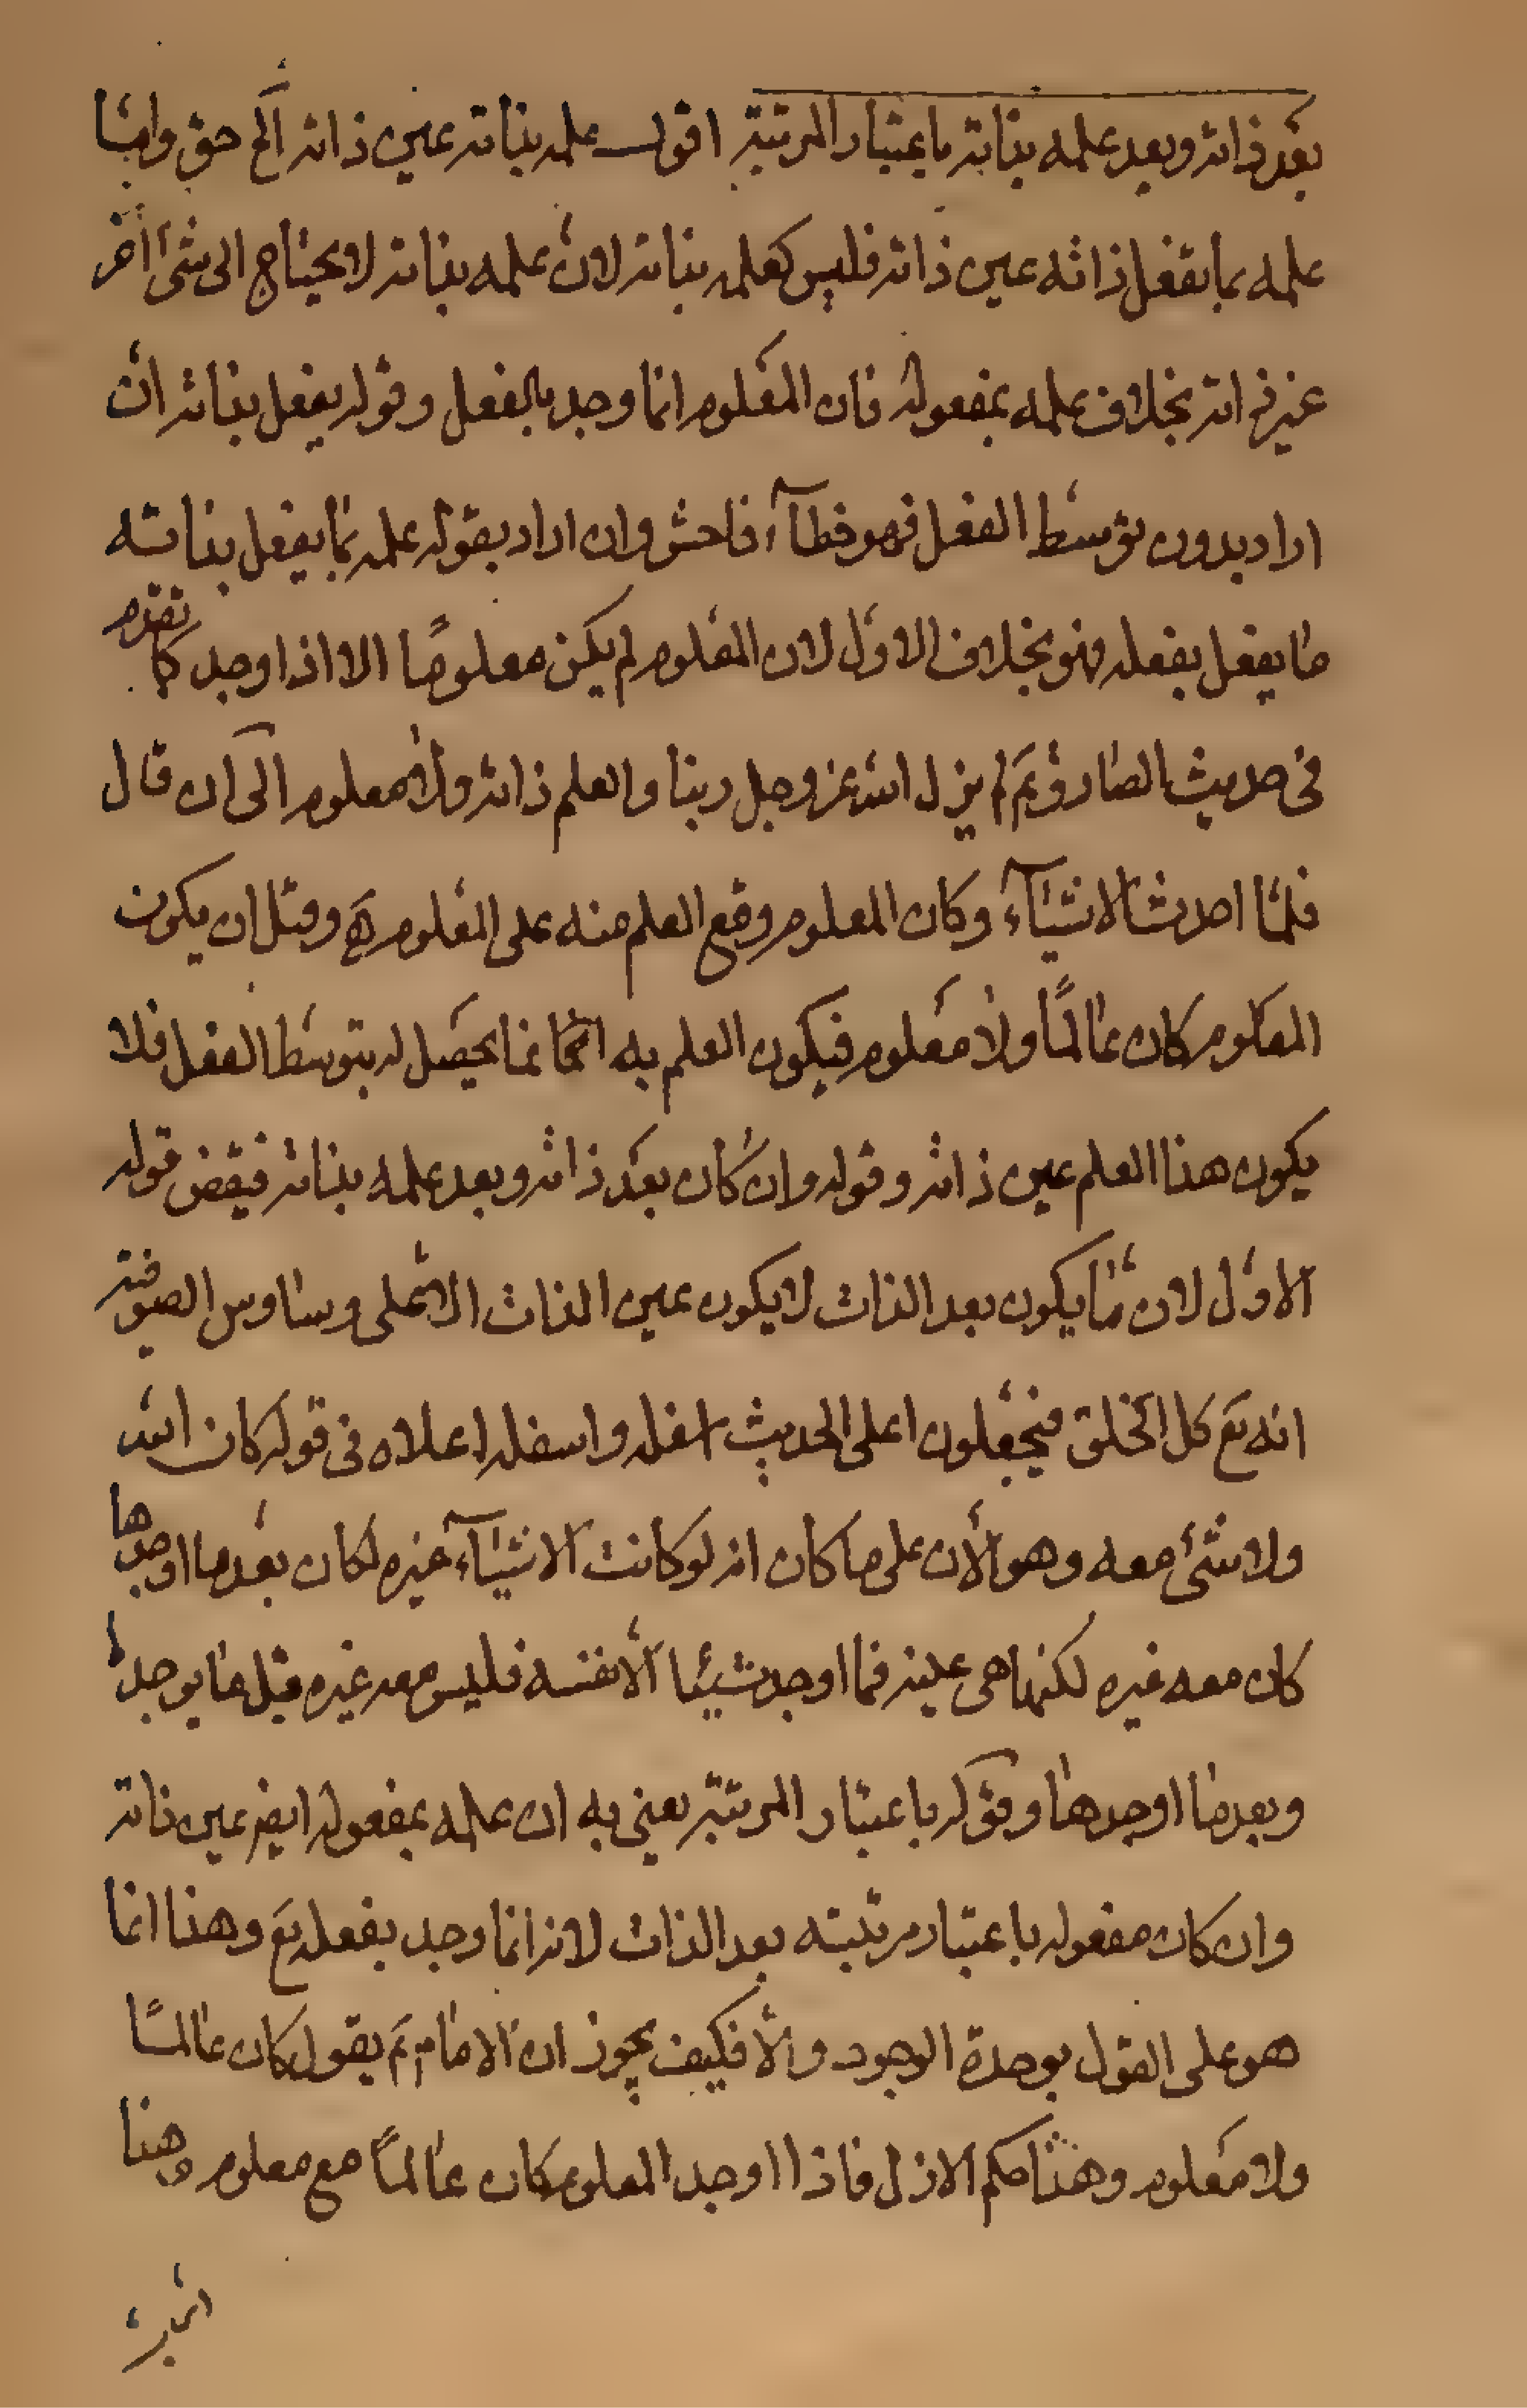 بعد ذاته وبعد علمه بذاته باعتبار المرتبة اقول علمه بذاته عين ذاته الخ حق وامّا
علمه بما يفعل ذاته عين ذاته فليس كعلمه بذاته لانّ علمه بذاته لا يحتاج الى شئ اخر
غير ذاته بخلاف علمه بمفعوله فان المعلوم انما وجد بالفعل وقوله يفعل بذاته ان
اراد بدون توسّط الفعل فهو خطآء فاحش وان اراد بقوله علمه بما يفعل بذاته
ما يفعل بفعله فهو بخلاف الاول لان المعلوم لم يكن معلومًا الا اذا وجد كما تقدم
فى حديث الصادق ع لم يزل الله عز وجل ربنا والعلم ذاته ولا معلوم الى ان قال
فلمّا احدث الاشيآء وكان المعلوم وقع العلم منه على المعلوم وقبل ان يكون
المعلوم كان عالمًا ولا معلوم فيكون العلم به انما يحصل له بتوسّط الفعل فلا
يكون هذا العلم عين ذاته وقوله وان كان بعد ذاته وبعد علمه بذاته فيقض قوله
الاول لان ما يكون بعد الذات لا يكون عين الذات الا على وساوس الصوفية
انه تع كل الخلق فيجعلون اعلى الحديث اسفله واسفله اعلاه فى قوله كان الله
ولا شئ معه وهو الان على ما كان انه لو كانت الاشيآء غيره لكان بعد ما اوجدها
كان معه غيره لكنها هى عينه فما اوجد شيئا الا نفسه فليس معه غيره قبل ما يوجدها
وبعد ما اوجدها وقوله باعتبار المرتبة يعنى به ان علمه بمفعوله ايض عين ذاته
وان كان مفعوله باعتبار مرتبته بعد الذات لانه انما وجد بفعله تع وهذا انما
هو على القول بوحدة الوجود والا فكيف يجوز ان الامام ع يقول كان عالمًا
ولا معلوم وهذا حكم الازل فاذا اوجد المعلوم كان عالمًا مع معلوم وهذا